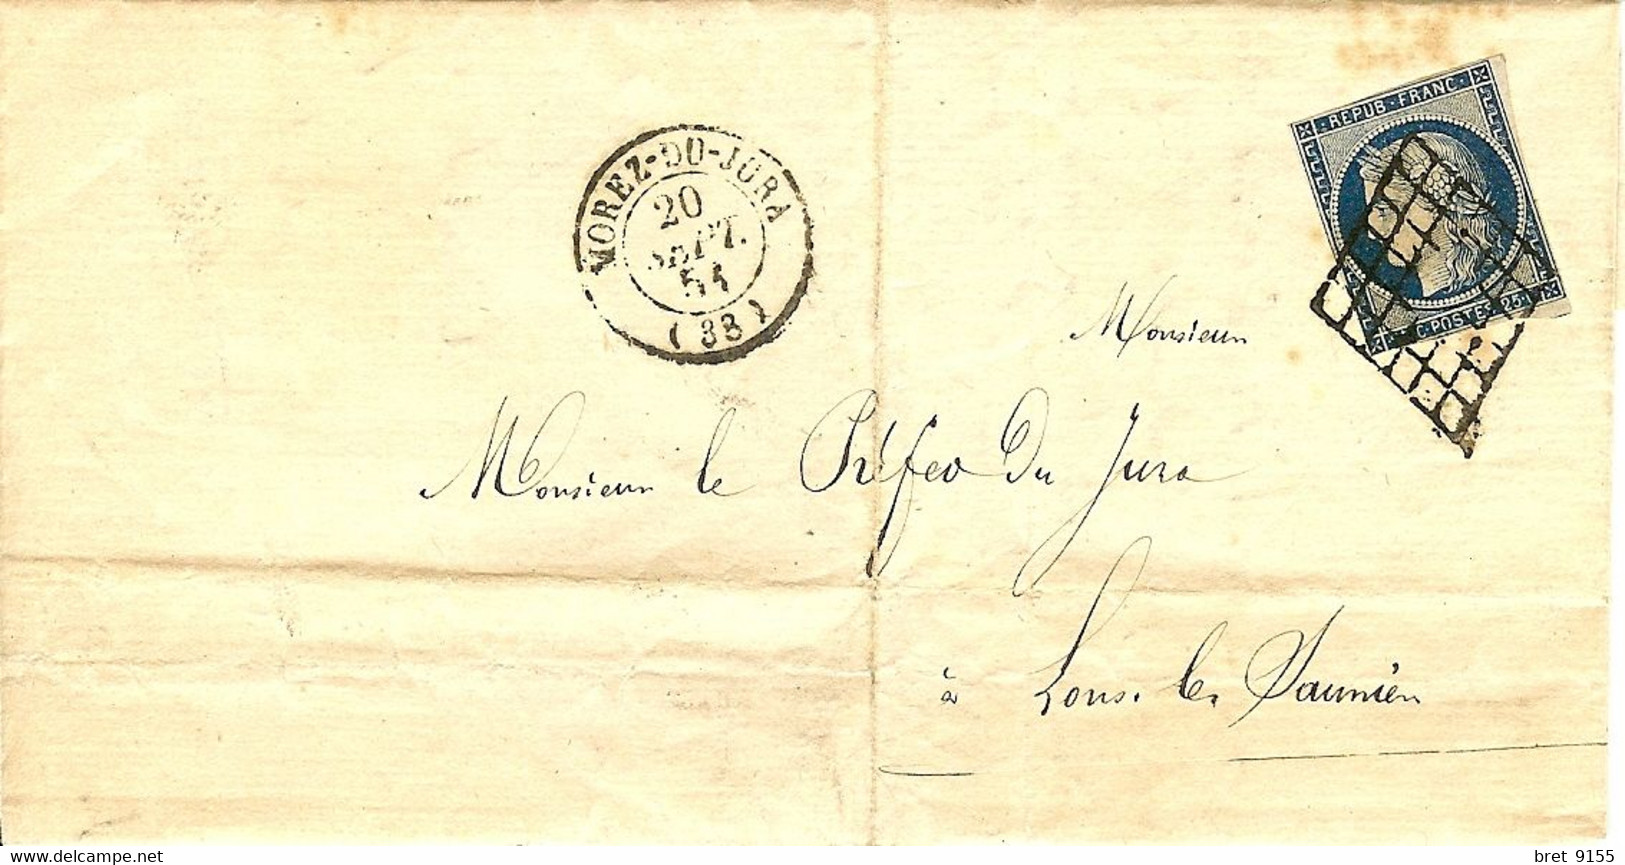 REPUB · FRANC ·
C. POSTES 25
MOREZ-DU-JURA
20
SEPT.
51
(38)
Monsieur
Monsieur le Préfet Du Jura
à Lons. les Saunier
bret 9155